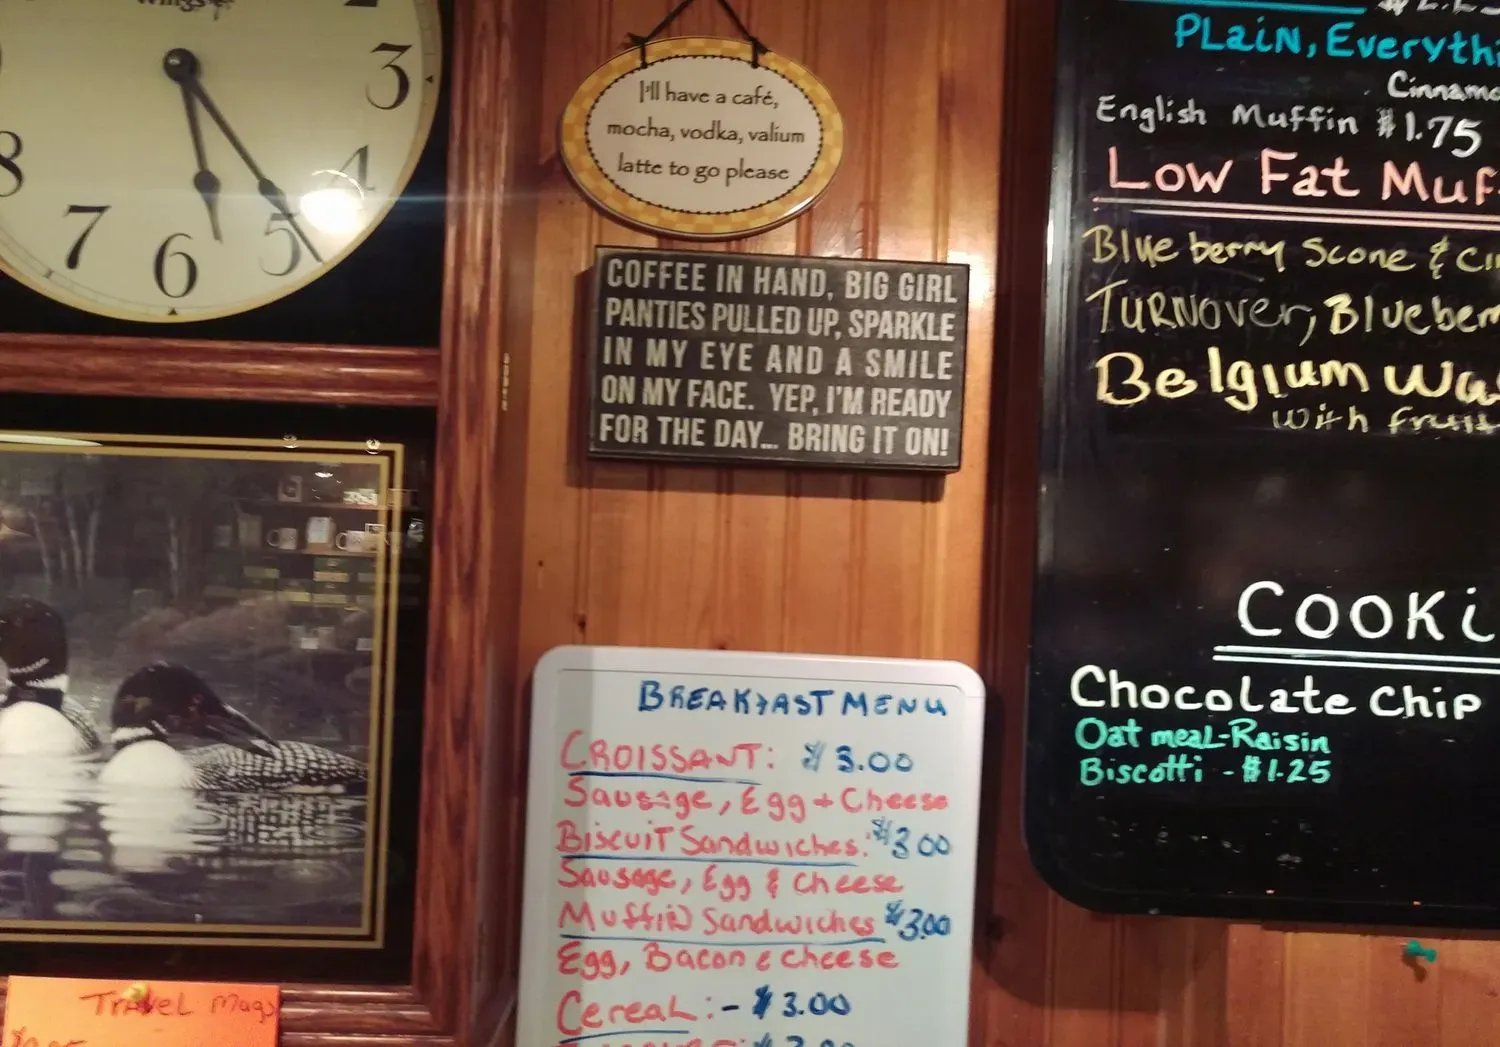 3
4
5
6
7
8
I'll have a café,
mocha, vodka, valium
latte to go please
COFFEE IN HAND, BIG GIRL
PANTIES PULLED UP, SPARKLE
IN MY EYE AND A SMILE
ON MY FACE. YEP, I'M READY
FOR THE DAY... BRING IT ON!
BREAKFAST MENU
CROISSANT: $3.00
Sausage, Egg + Cheese
Biscuit Sandwiches: $3.00
Sausage, Egg & Cheese
Muffin Sandwiches $3.00
Egg, Bacon & Cheese
Cereal: - $3.00
Travel Mags
PLaiN, Everythi
Cinnamo
English Muffin $1.75
Low Fat Muf
Blueberry Scone & Ci
TURNOver, Blueber
Belgium Wa
with fruit
COOKi
Chocolate Chip
Oatmeal-Raisin
Biscotti - $1.25